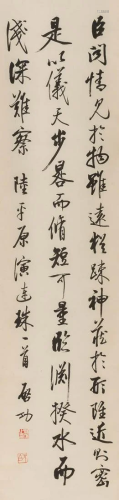 臣聞情見於物雖遠猶疎神藏於形雖近則密
是以儀天步晷而脩短可量臨淵揆水而
淺深難察 陸平原演連珠一首 啟功